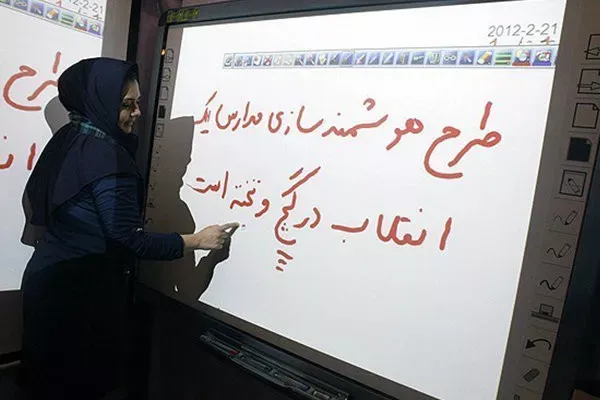 2012-2-21
طرح هوشمندسازی مدارس یک
انقلاب در گچ و تخته است
پ
طرح
ان